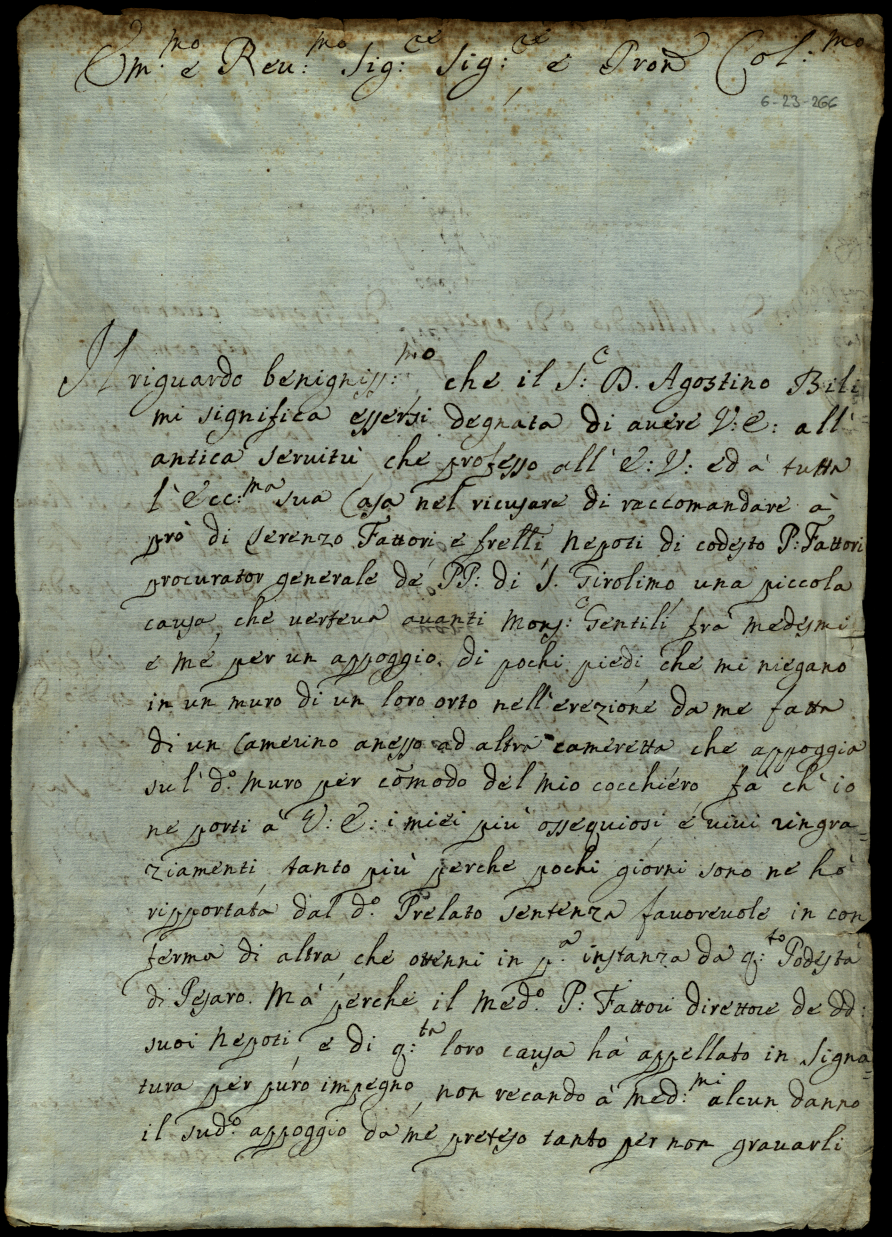 Em:mo e Reu:mo Sig:re Sig:re e Pron Col:mo
6-23-266
Il riguardo benigniss:mo che il S:r D. Agostino Bili
mi significa essersi degnata di auere V: E: all'
antica seruitù, che professo all'E: V: ed à tutta
l'Ecc:ma sua Casa nel ricusare di raccomandare à
prò di Cerenzo Fattori e frelli Nepoti di codesto P: Fattori
procurator generale de PP: di S. Girolimo una piccola
causa, che uerteua auanti Mons:r Gentili frà medesmi
e mé per un appoggio di pochi piedi, che mi niegano
in un muro di un loro orto nell'erezione da me fatta
di un Camerino anesso ad altra cameretta che appoggia
sul d:o muro per cōmodo del mio cocchiéro fà ch'io
ne porti à V: E: i miei più ossequiosi é uiui ringra=
ziamenti, tanto più perche pochi giorni sono ne hò
ripportata dal d:o Prelato sentenza fauoreuole in con
ferma di altra che ottenni in p:a instanza da q:to Podestà
di Pesaro. Mà perche il Med:o P: Fattori direttore de dd:
suoi Nepoti, e di q:ta loro causa hà appellato in Signa=
tura per puro impegno, non recando à med:mi alcun danno
il sud:o appoggio da me preteso tanto per non grauarli